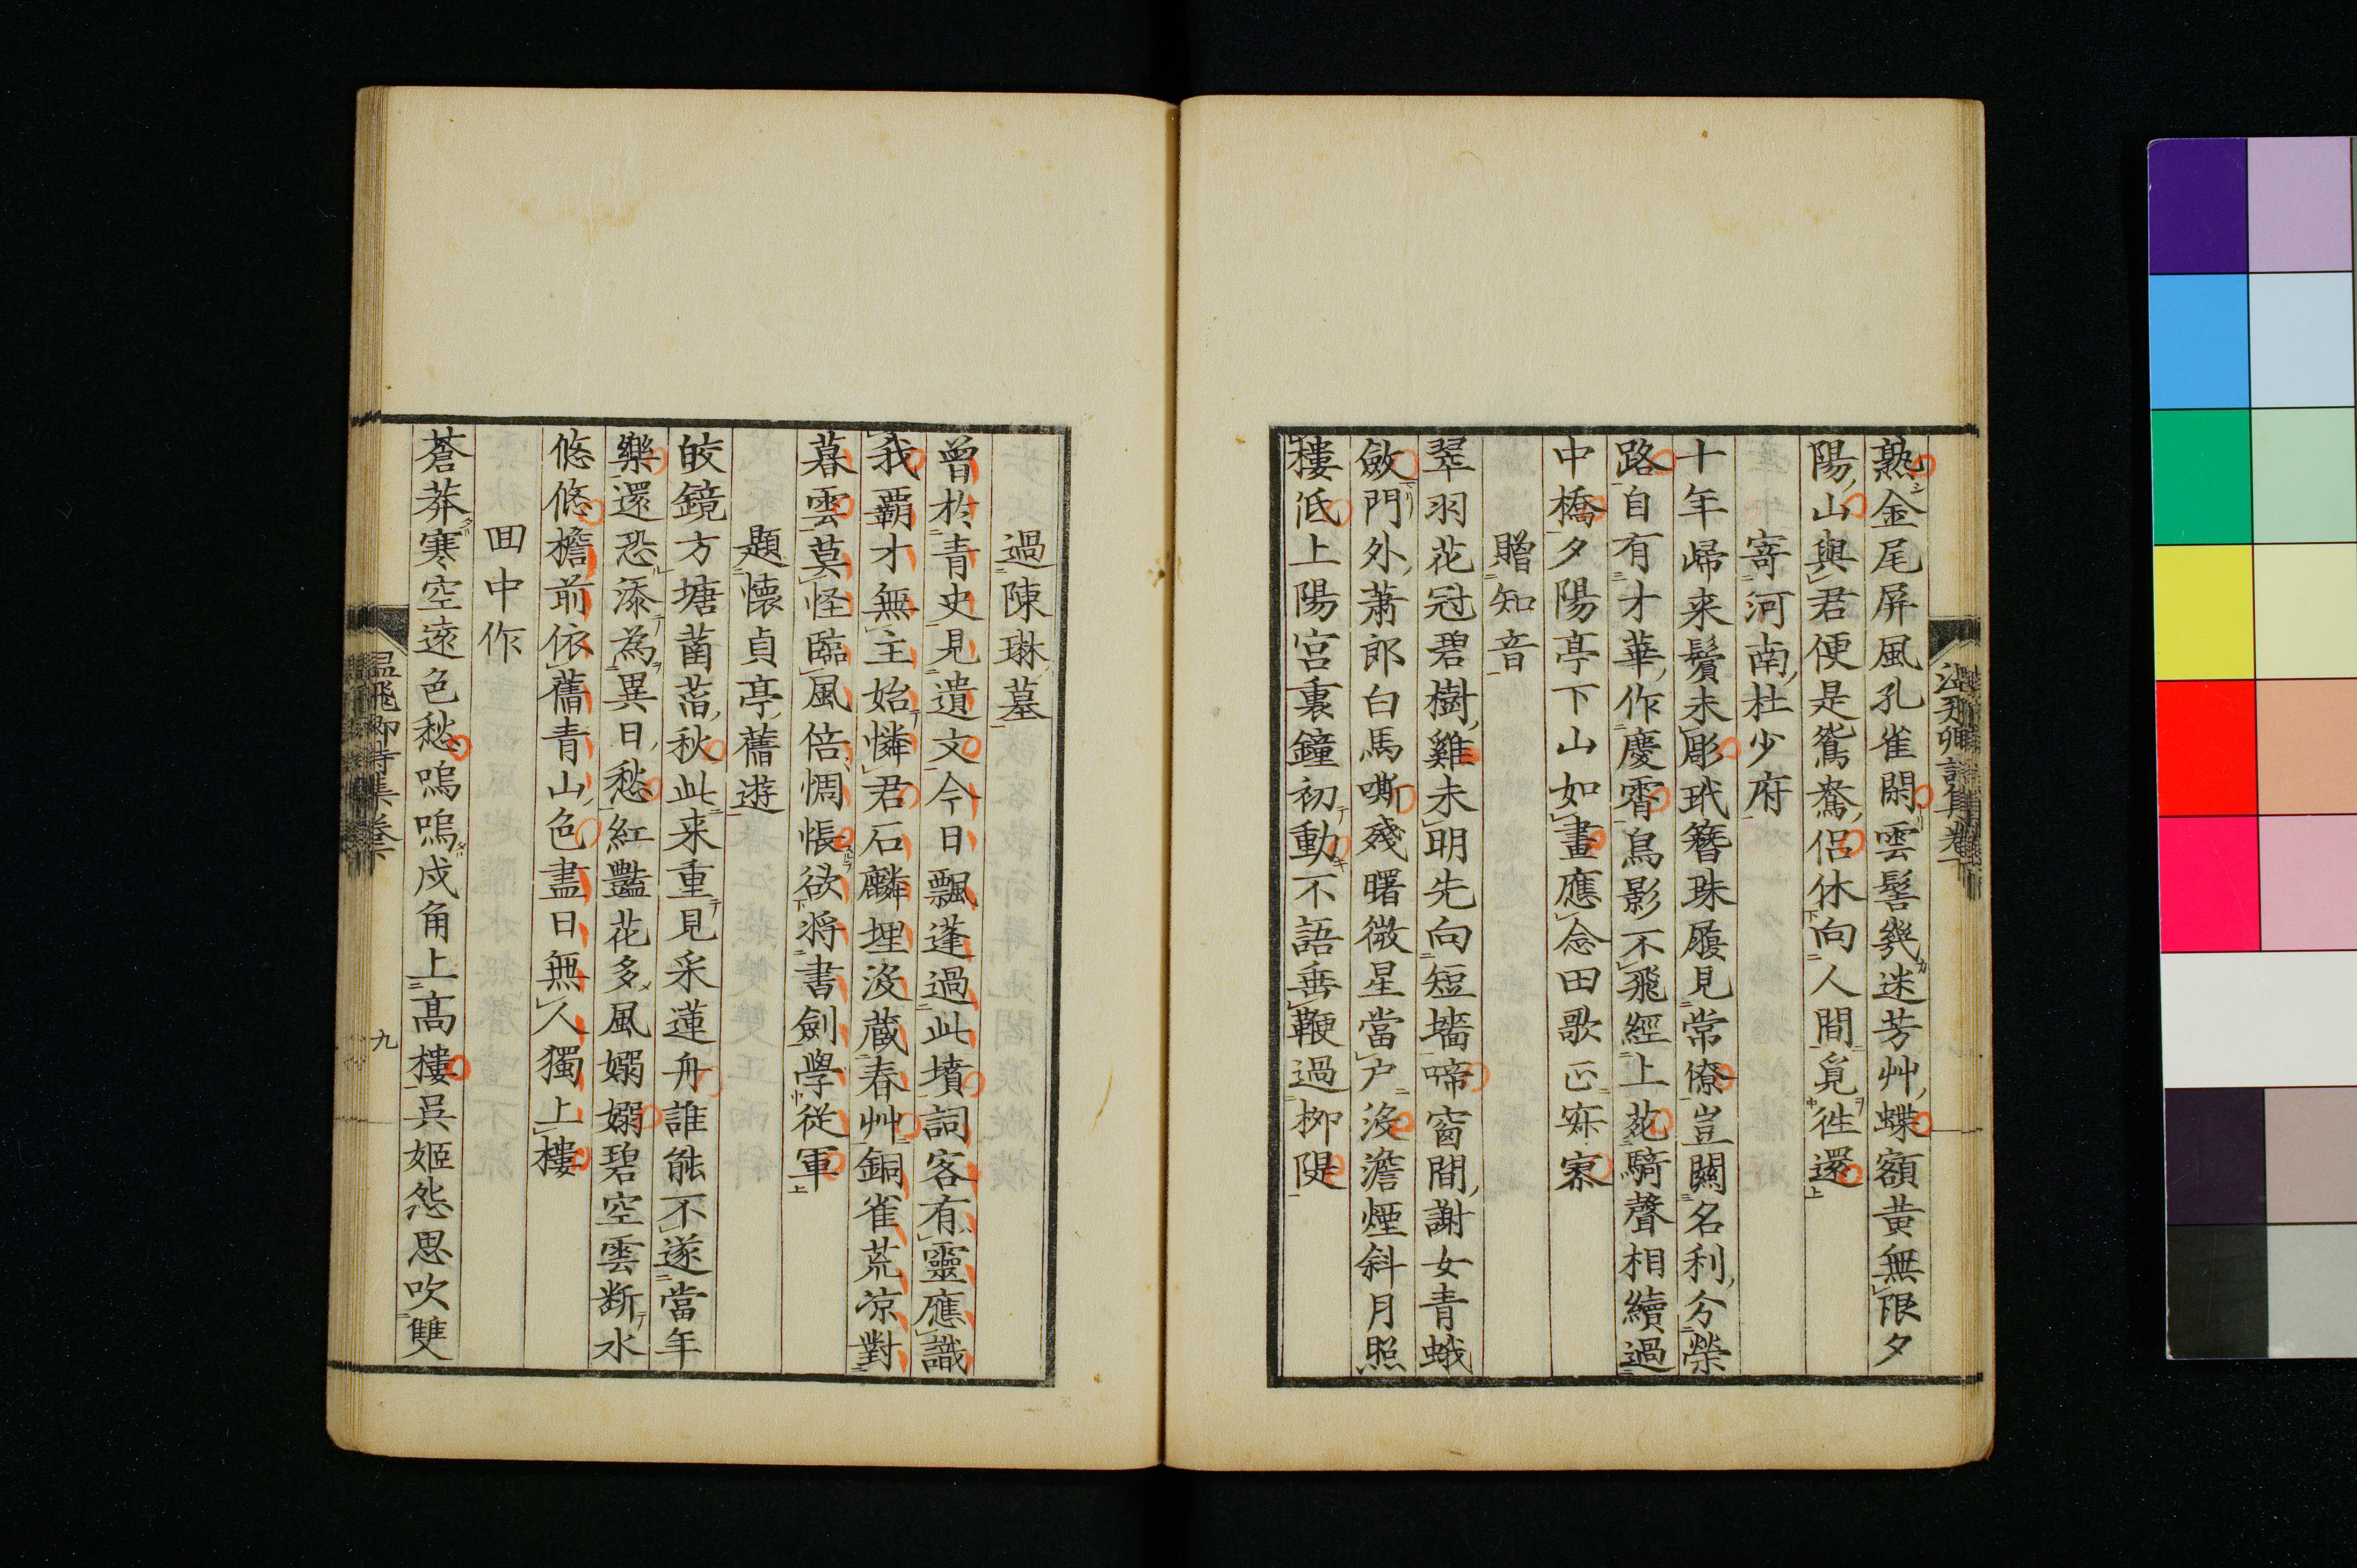 熟金尾屏風孔雀閑雲髻幾迷芳艸蝶額黃無限夕
陽山與君便是鴛鴦侶休向人間覓徃還
寄河南杜少府
十年歸来鬢未彫玳簪珠履見常僚豈關名利分榮
路自有才華作慶霄鳥影不飛經上苑騎聲相續過
中橋夕陽亭下山如畫應念田歌正寂寥
贈知音
翠羽花冠碧樹雞未明先向短墻啼窗間謝女青蛾
斂門外蕭郎白馬嘶殘曙微星當户没澹煙斜月照
樓低上陽宮裏鐘初動不語垂鞭過柳隄
過陳琳墓
曾於青史見遺文今日飄蓬過此墳詞客有靈應識
我霸才無主始憐君石麟埋没蔵春艸銅雀荒凉對
暮雲莫怪臨風倍惆悵欲将書劍學從軍
題懷貞亭舊遊
皎鏡方塘菡萏秋此来重見采蓮舟誰能不逐當年
樂還恐添為異日愁紅豔花多風嫋嫋碧空雲断水
悠悠檐前依舊青山色盡日無人獨上樓
回中作
蒼莽寒空遠色愁嗚嗚戍角上高樓吳姬怨思吹雙
温飛卿詩集卷
九